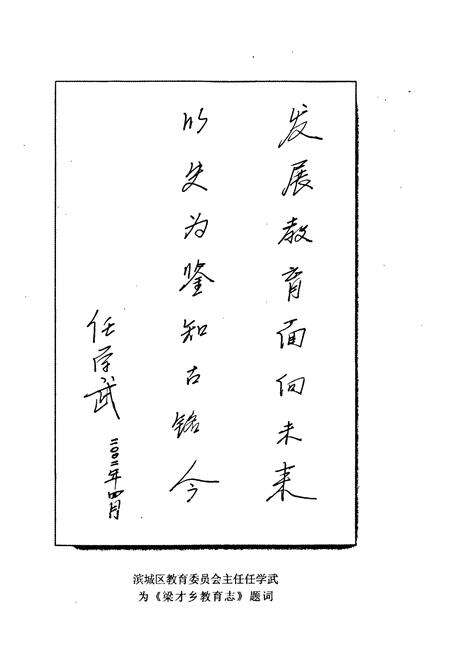 发展教育面向未来
以史为鉴知古铭今
任学武
二〇〇二年四月
滨城区教育委员会主任任学武
为《梁才乡教育志》题词